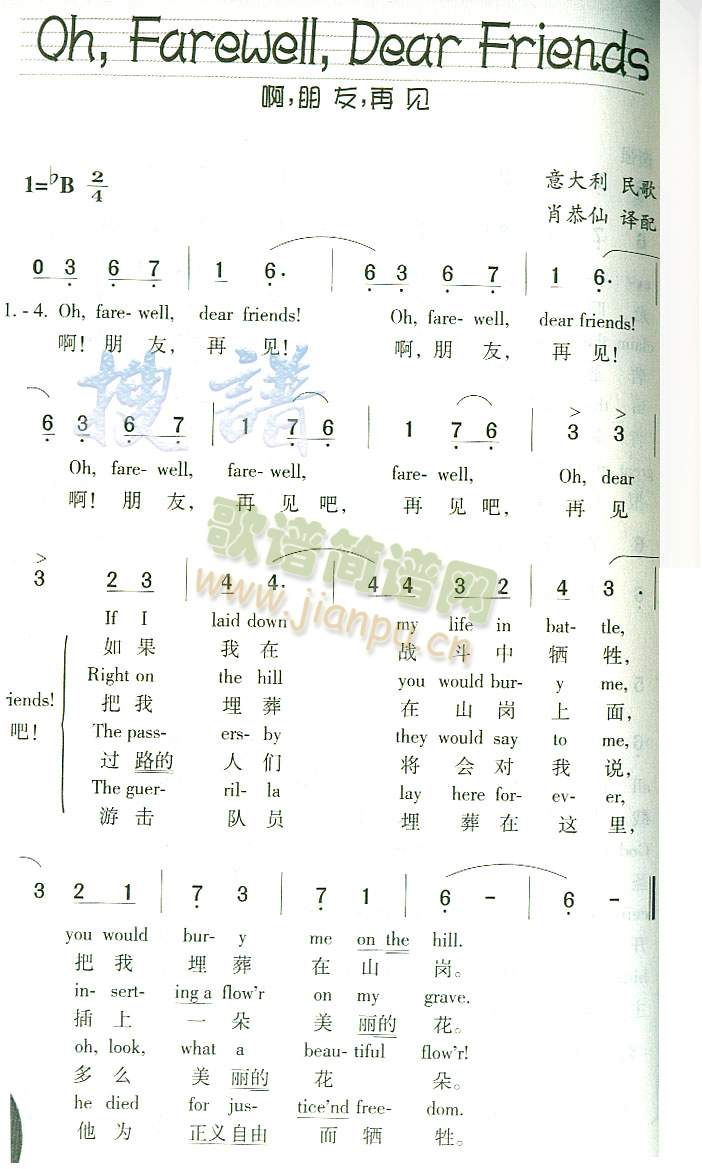 Oh, Farewell, Dear Friends
啊,朋友,再见
1=♭B 2/4
意大利 民歌
肖恭仙 译配
0 3 6 7 | 1 6· | 6 3 6 7 | 1 6·
1.-4. Oh, fare- well, dear friends! Oh, fare- well, dear friends!
啊! 朋 友, 再 见! 啊, 朋 友, 再 见!
6 3 6 7 | 1 7 6 | 1 7 6 | 3 3
Oh, fare- well, fare- well, fare- well, Oh, dear
啊! 朋 友, 再 见 吧, 再 见 吧, 再 见
3 2 3 | 4 4· | 4 4 3 2 | 4 3·
If I laid down my life in bat- tle,
如 果 我 在 战 斗 中 牺 牲,
Right on the hill you would bur- y me,
riends!
把 我 埋 葬 在 山 岗 上 面,
吧!
The pass- ers- by they would say to me,
过 路的 人 们 将 会 对 我 说,
The guer- ril- la lay here for- ev- er,
游 击 队 员 埋 葬 在 这 里,
3 2 1 | 7 3 | 7 1 | 6 - | 6 -
you would bur- y me on the hill.
把 我 埋 葬 在 山 岗。
in- sert- ing a flow'r on my grave.
插 上 一 朵 美 丽的 花。
oh, look, what a beau- tiful flow'r!
多 么 美 丽的 花 朵。
he died for jus- tice'nd free- dom.
他 为 正义 自由 而 牺 牲。
搜 谱
歌谱简谱网
www.jianpu.cn